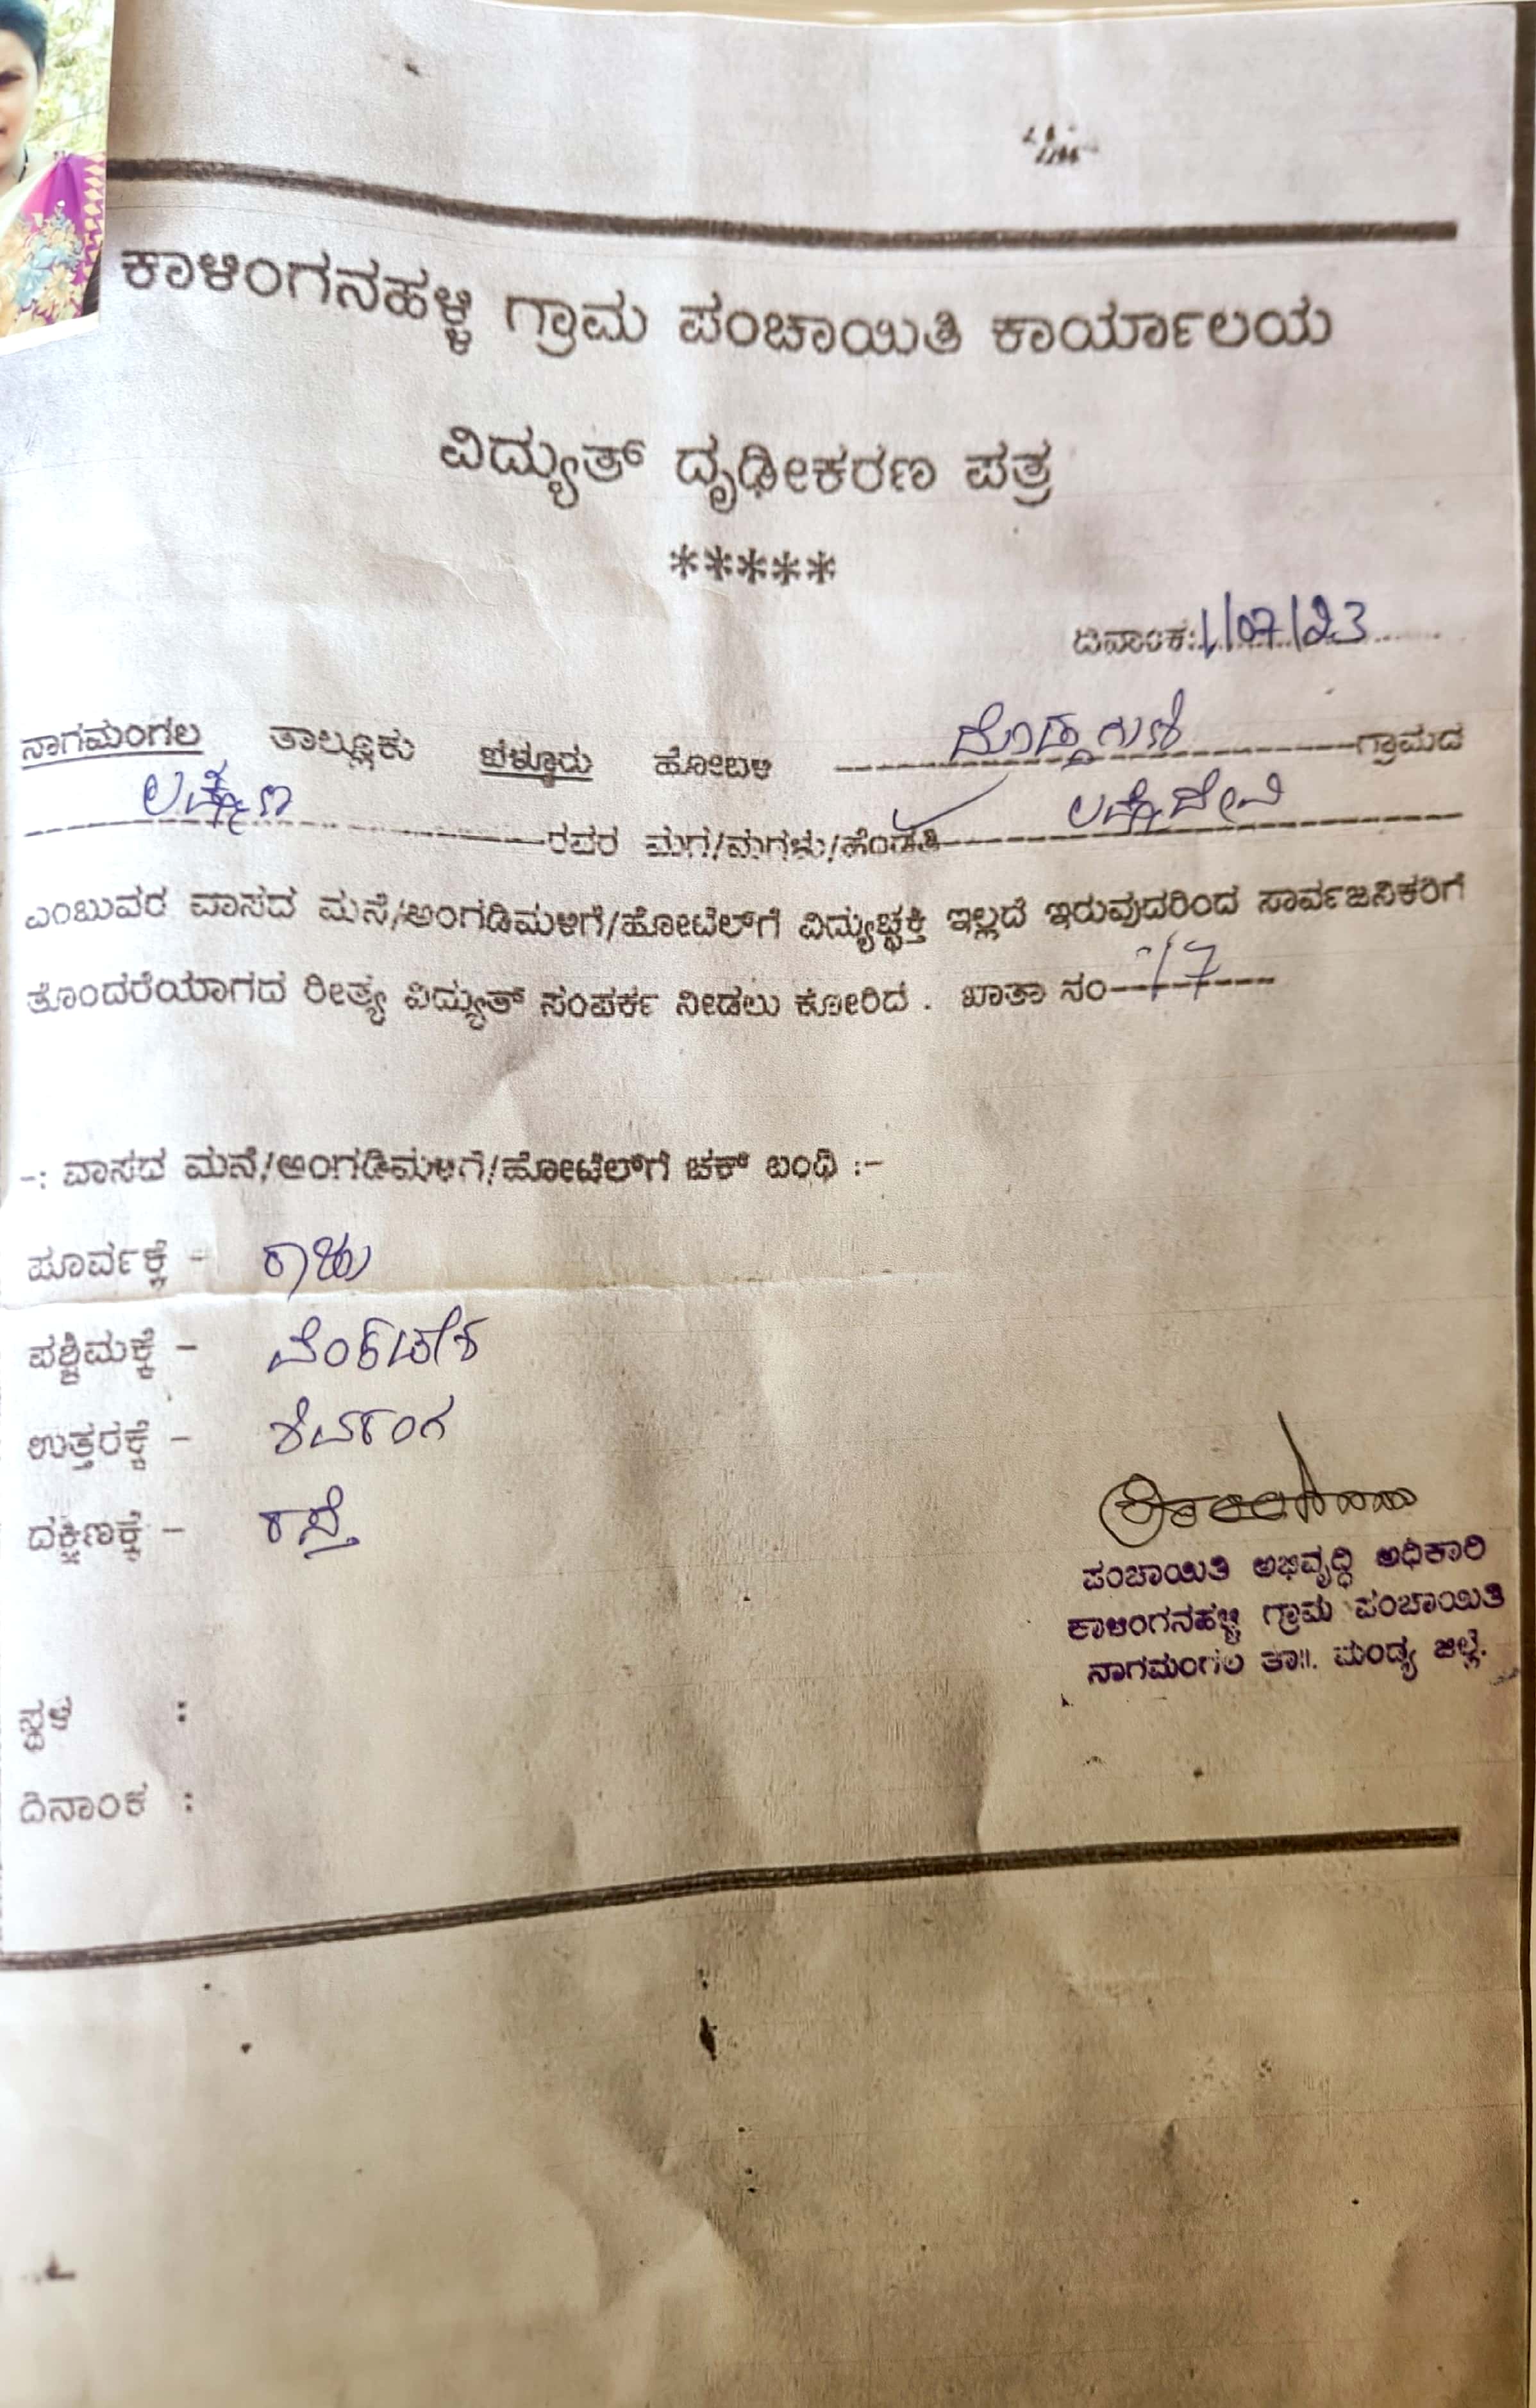 ಕಾಳಿಂಗನಹಳ್ಳಿ ಗ್ರಾಮ ಪಂಚಾಯಿತಿ ಕಾರ್ಯಾಲಯ
ವಿದ್ಯುತ್ ದೃಢೀಕರಣ ಪತ್ರ
*****
ದಿನಾಂಕ: 1/07/23
ನಾಗಮಂಗಲ ತಾಲ್ಲೂಕು ಬೆಳ್ಳೂರು ಹೋಬಳಿ ---------- ಗ್ರಾಮದ
ಲಕ್ಷ್ಮಣ ---------- ರವರ ಮಗ/ಮಗಳು/ಹೆಂಡತಿ ✓ ---------- ಲಕ್ಷ್ಮೀದೇವಿ
ಎಂಬುವರ ವಾಸದ ಮನೆ/ಅಂಗಡಿಮಳಿಗೆ/ಹೋಟೆಲ್‌ಗೆ ವಿದ್ಯುಚ್ಛಕ್ತಿ ಇಲ್ಲದೆ ಇರುವುದರಿಂದ ಸಾರ್ವಜನಿಕರಿಗೆ
ತೊಂದರೆಯಾಗದ ರೀತ್ಯ ವಿದ್ಯುತ್ ಸಂಪರ್ಕ ನೀಡಲು ಕೋರಿದೆ . ಖಾತಾ ನಂ----------
-: ವಾಸದ ಮನೆ/ಅಂಗಡಿಮಳಿಗೆ/ಹೋಟೆಲ್‌ಗೆ ಚಕ್ ಬಂಧಿ :-
ಪೂರ್ವಕ್ಕೆ - ರಾಜು
ಪಶ್ಚಿಮಕ್ಕೆ - ವೆಂಕಟೇಶ
ಉತ್ತರಕ್ಕೆ -
ದಕ್ಷಿಣಕ್ಕೆ - ರಸ್ತೆ
ಪಂಚಾಯಿತಿ ಅಭಿವೃದ್ಧಿ ಅಧಿಕಾರಿ
ಕಾಳಿಂಗನಹಳ್ಳಿ ಗ್ರಾಮ ಪಂಚಾಯಿತಿ
ನಾಗಮಂಗಲ ತಾ||. ಮಂಡ್ಯ ಜಿಲ್ಲೆ.
ಸ್ಥಳ :
ದಿನಾಂಕ :